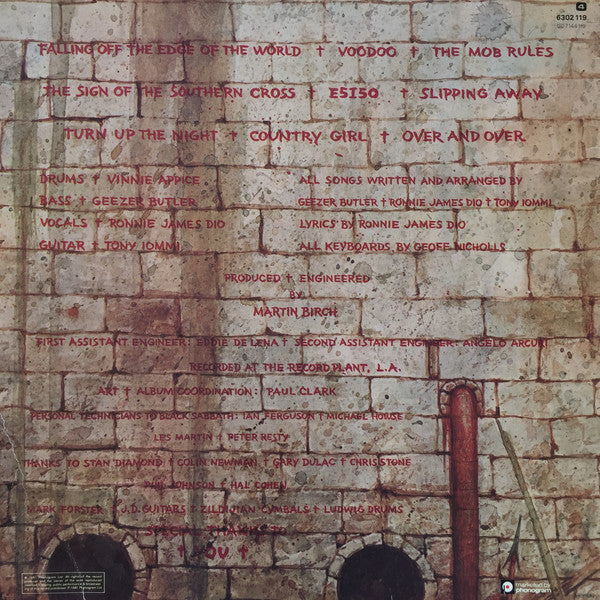 4
6302 119
FALLING OFF THE EDGE OF THE WORLD † VOODOO † THE MOB RULES
THE SIGN OF THE SOUTHERN CROSS † E5150 † SLIPPING AWAY
TURN UP THE NIGHT † COUNTRY GIRL † OVER AND OVER
DRUMS † VINNIE APPICE
BASS † GEEZER BUTLER
VOCALS † RONNIE JAMES DIO
GUITAR † TONY IOMMI
ALL SONGS WRITTEN AND ARRANGED BY
GEEZER BUTLER † RONNIE JAMES DIO † TONY IOMMI
LYRICS BY RONNIE JAMES DIO
ALL KEYBOARDS BY GEOFF NICHOLLS
PRODUCED † ENGINEERED
BY
MARTIN BIRCH
FIRST ASSISTANT ENGINEER: EDDIE DE LENA † SECOND ASSISTANT ENGINEER: ANGELO ARCURI
RECORDED AT THE RECORD PLANT, L.A.
ART † ALBUM COORDINATION: PAUL CLARK
PERSONAL TECHNICIANS TO BLACK SABBATH: IAN FERGUSON † MICHAEL HOWSE
LES MARTIN † PETER RESTY
THANKS TO STAN DIAMOND † COLIN NEWMAN † GARY DULAC † CHRIS STONE
PHIL JOHNSON † HAL COHEN
MARK FORSTER † J.D. GUITARS † ZILDJIAN CYMBALS † LUDWIG DRUMS
SPECIAL THANKS TO
† YOU †
marketed by
phonogram